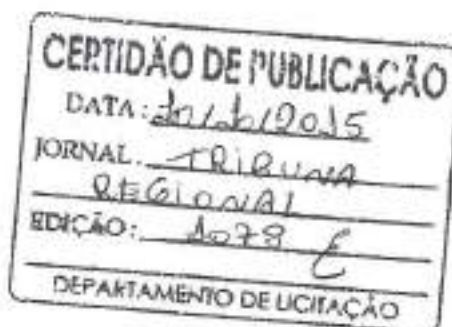 CERTIDÃO DE PUBLICAÇÃO
DATA: 2015
JORNAL: TRIBUNA
REGIONAL
EDIÇÃO: 1078
DEPARTAMENTO DE LICITAÇÃO